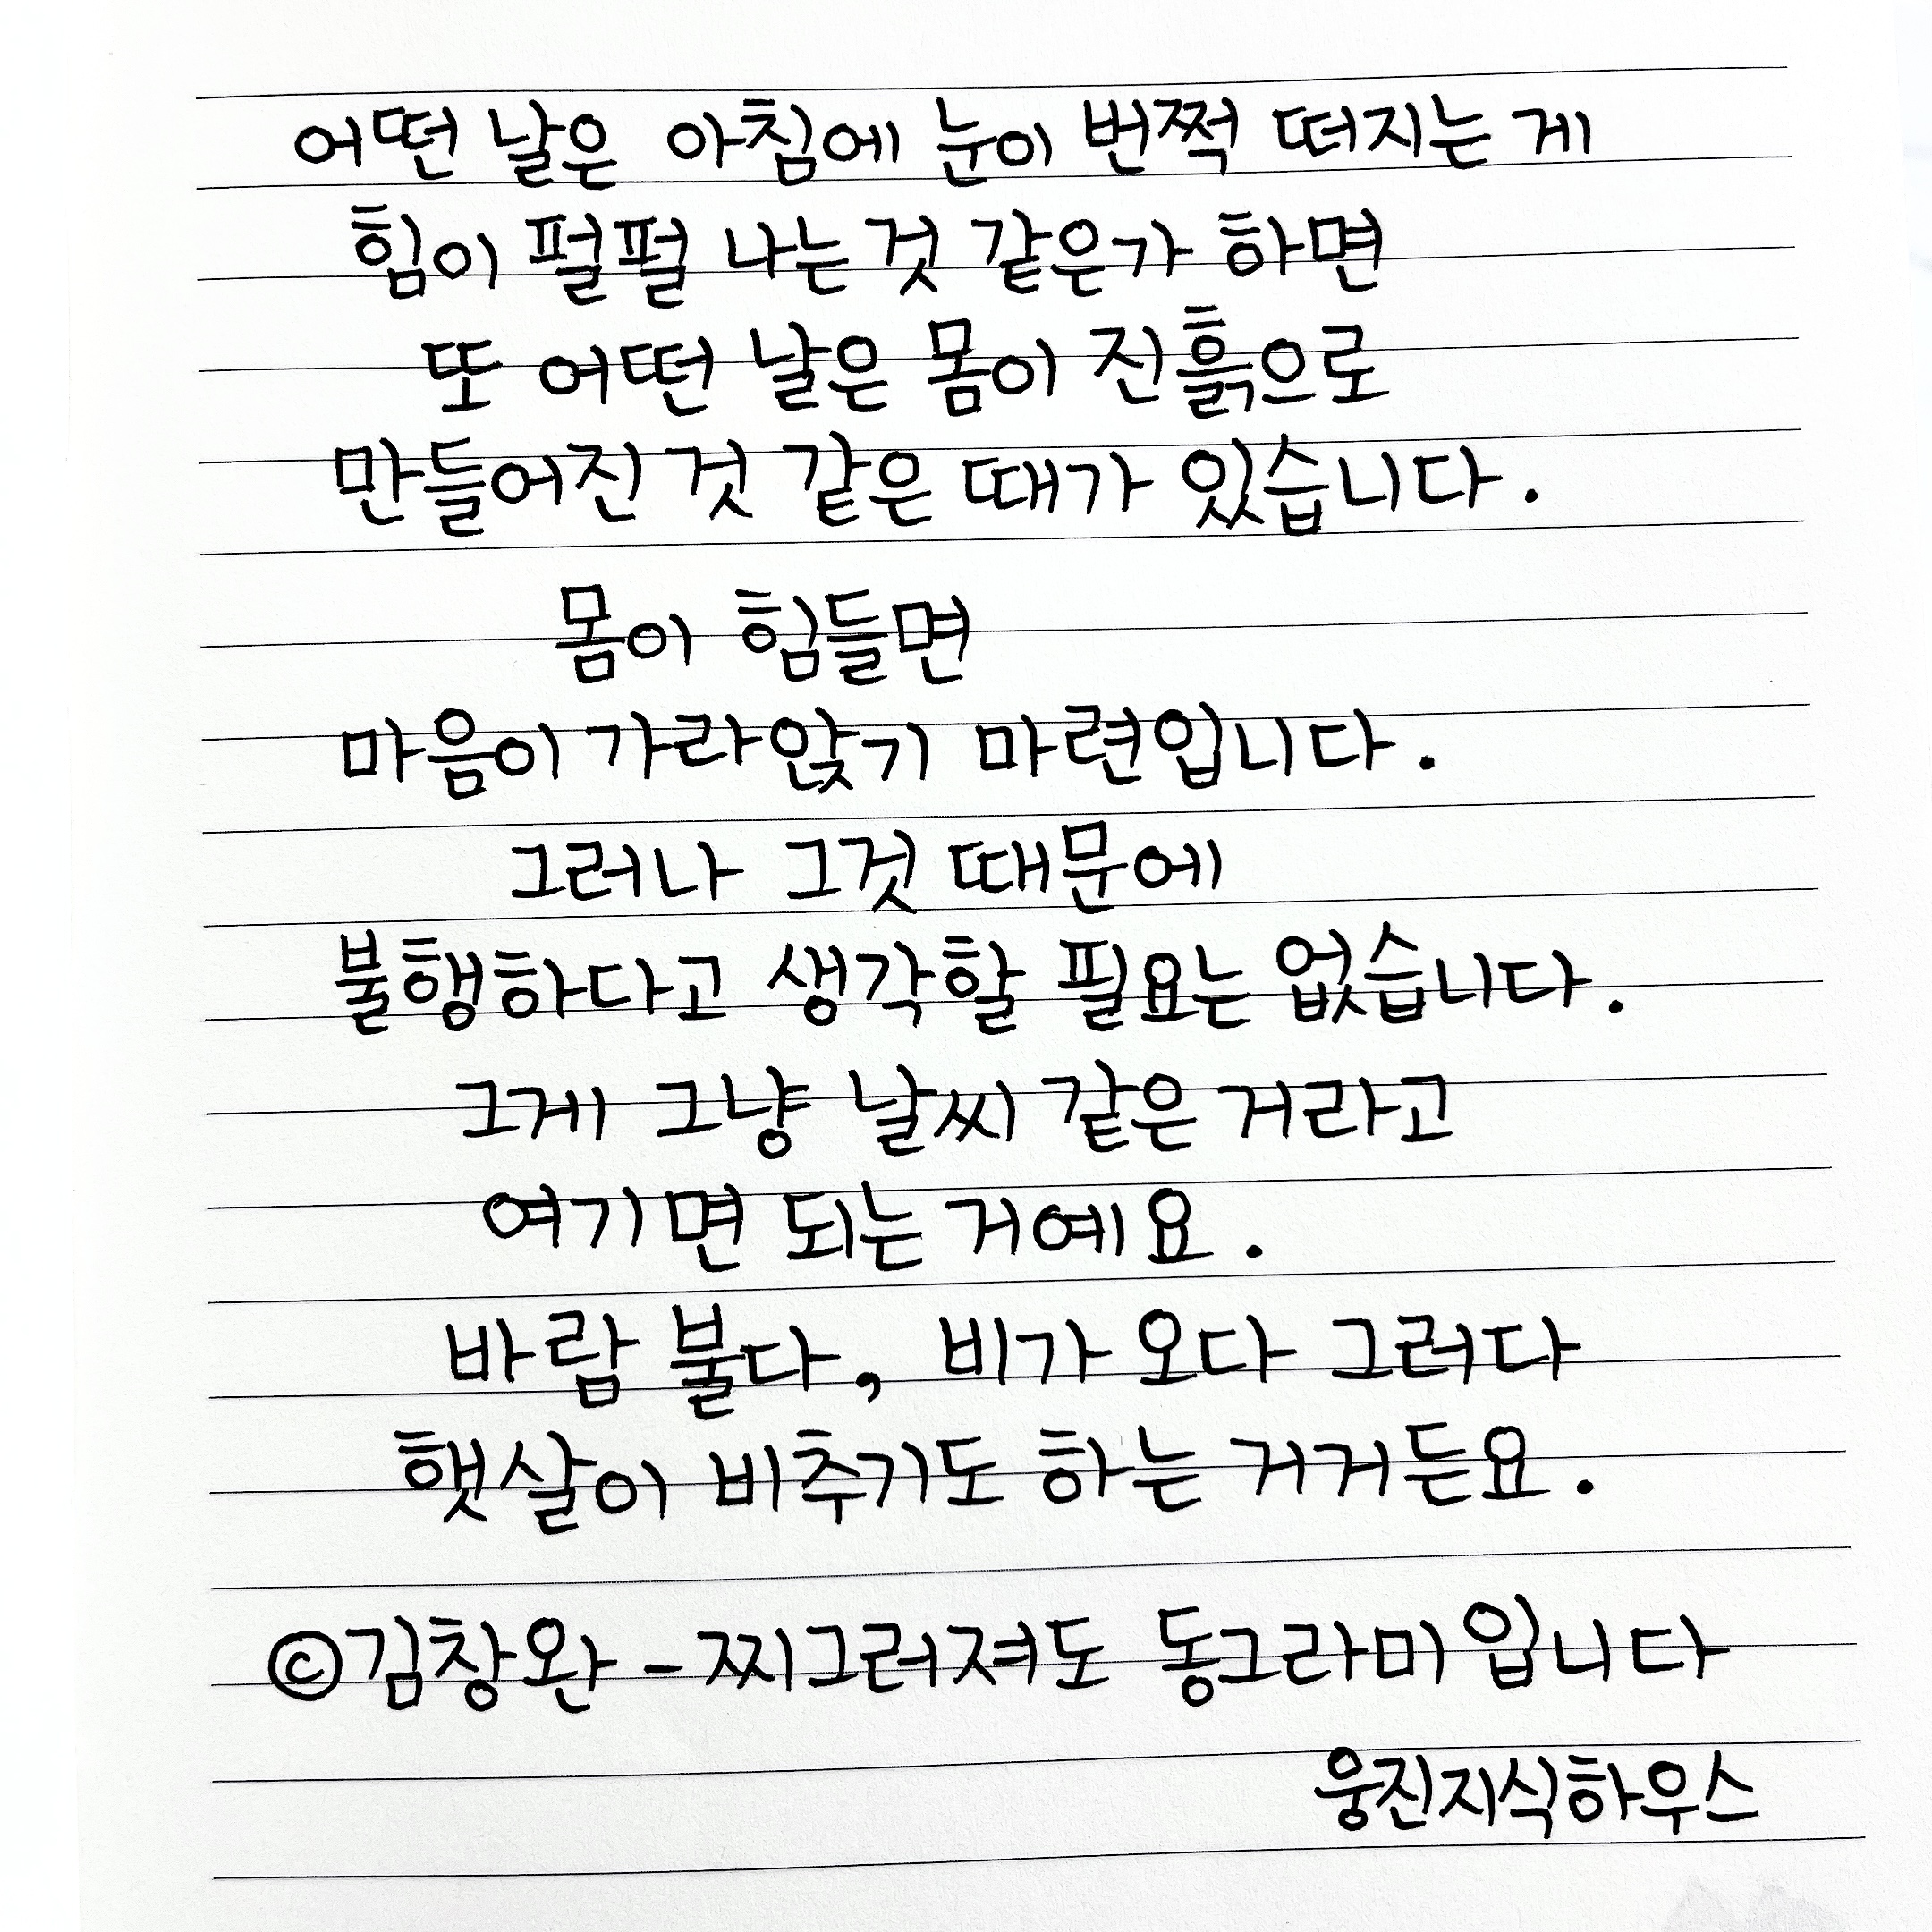 어떤 날은 아침에 눈이 번쩍 떠지는 게
힘이 펄펄 나는 것 같은가 하면
또 어떤 날은 몸이 진흙으로
만들어진 것 같은 때가 있습니다.
몸이 힘들면
마음이 가라앉기 마련입니다.
그러나 그것 때문에
불행하다고 생각할 필요는 없습니다.
그게 그냥 날씨 같은 거라고
여기면 되는 거예요.
바람 불다, 비가 오다 그러다
햇살이 비추기도 하는 거거든요.
©김창완 - 찌그러져도 동그라미입니다
웅진지식하우스